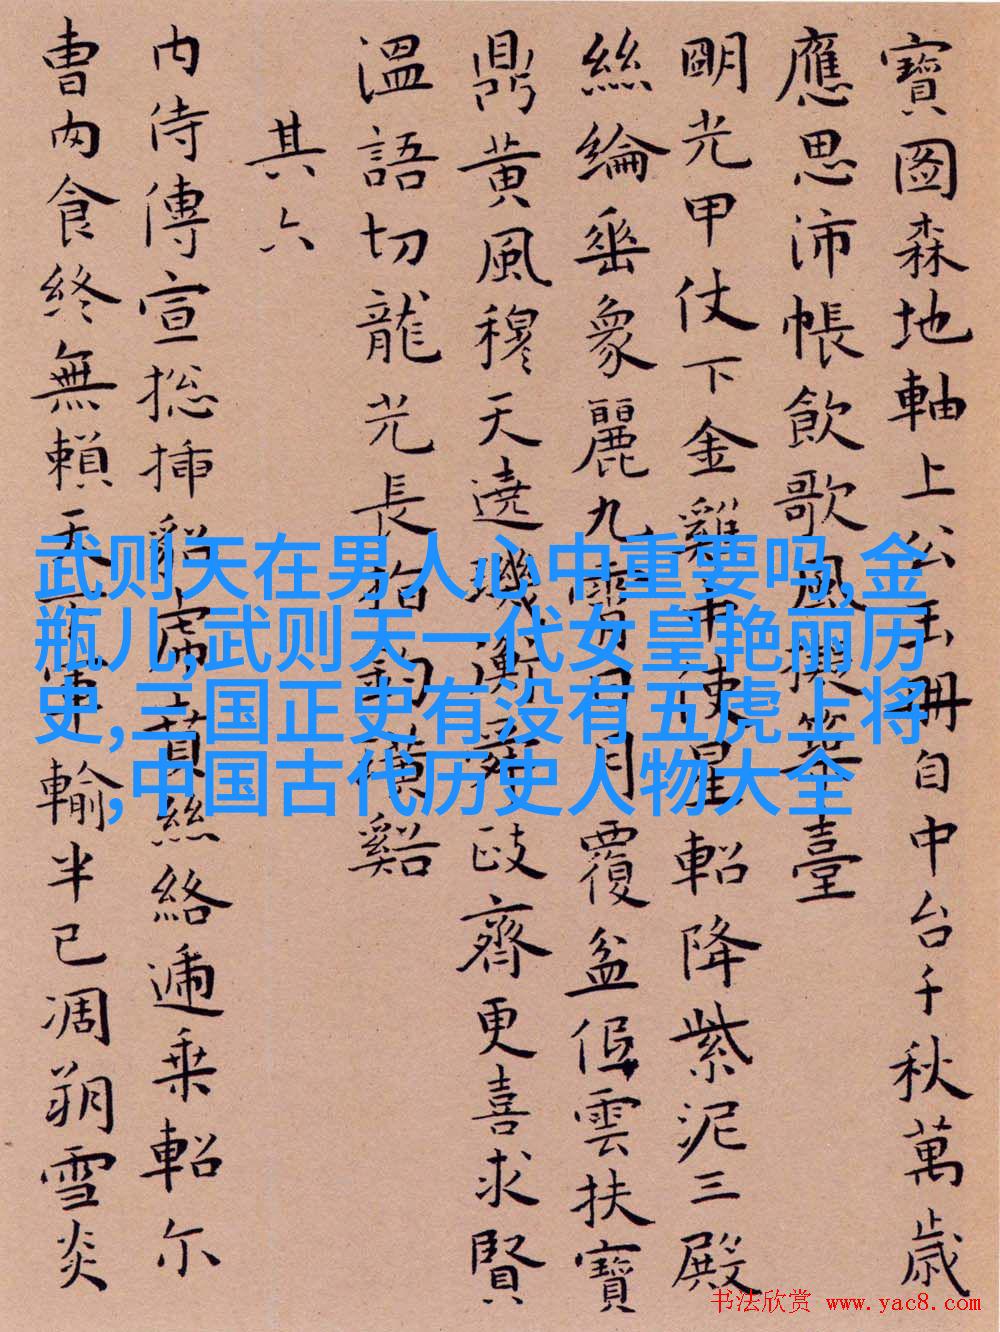 寶圖森地軸上公玉冊自中台千秋萬歲
應思沛帳飲歌風臺
眀光甲仗下金雞使星軺降紫泥三殿
絲綸垂象麗九月覆盆雲扶寶
鼎黄風穆天遶璣衡政齊更喜求賢
溫語切龍光長抱釣璜谿
其六
内侍傳宣捴揷貂虎賁絲絡逓乗軺尓
曹肉食終無賴天輸半已凋朔雪炎
武则天在男人心中重要吗,金
瓶儿,武则天一代女皇艳丽历
史,三国正史有没有五虎上将
,中国古代历史人物大全
书法欣赏 www.yac8.com